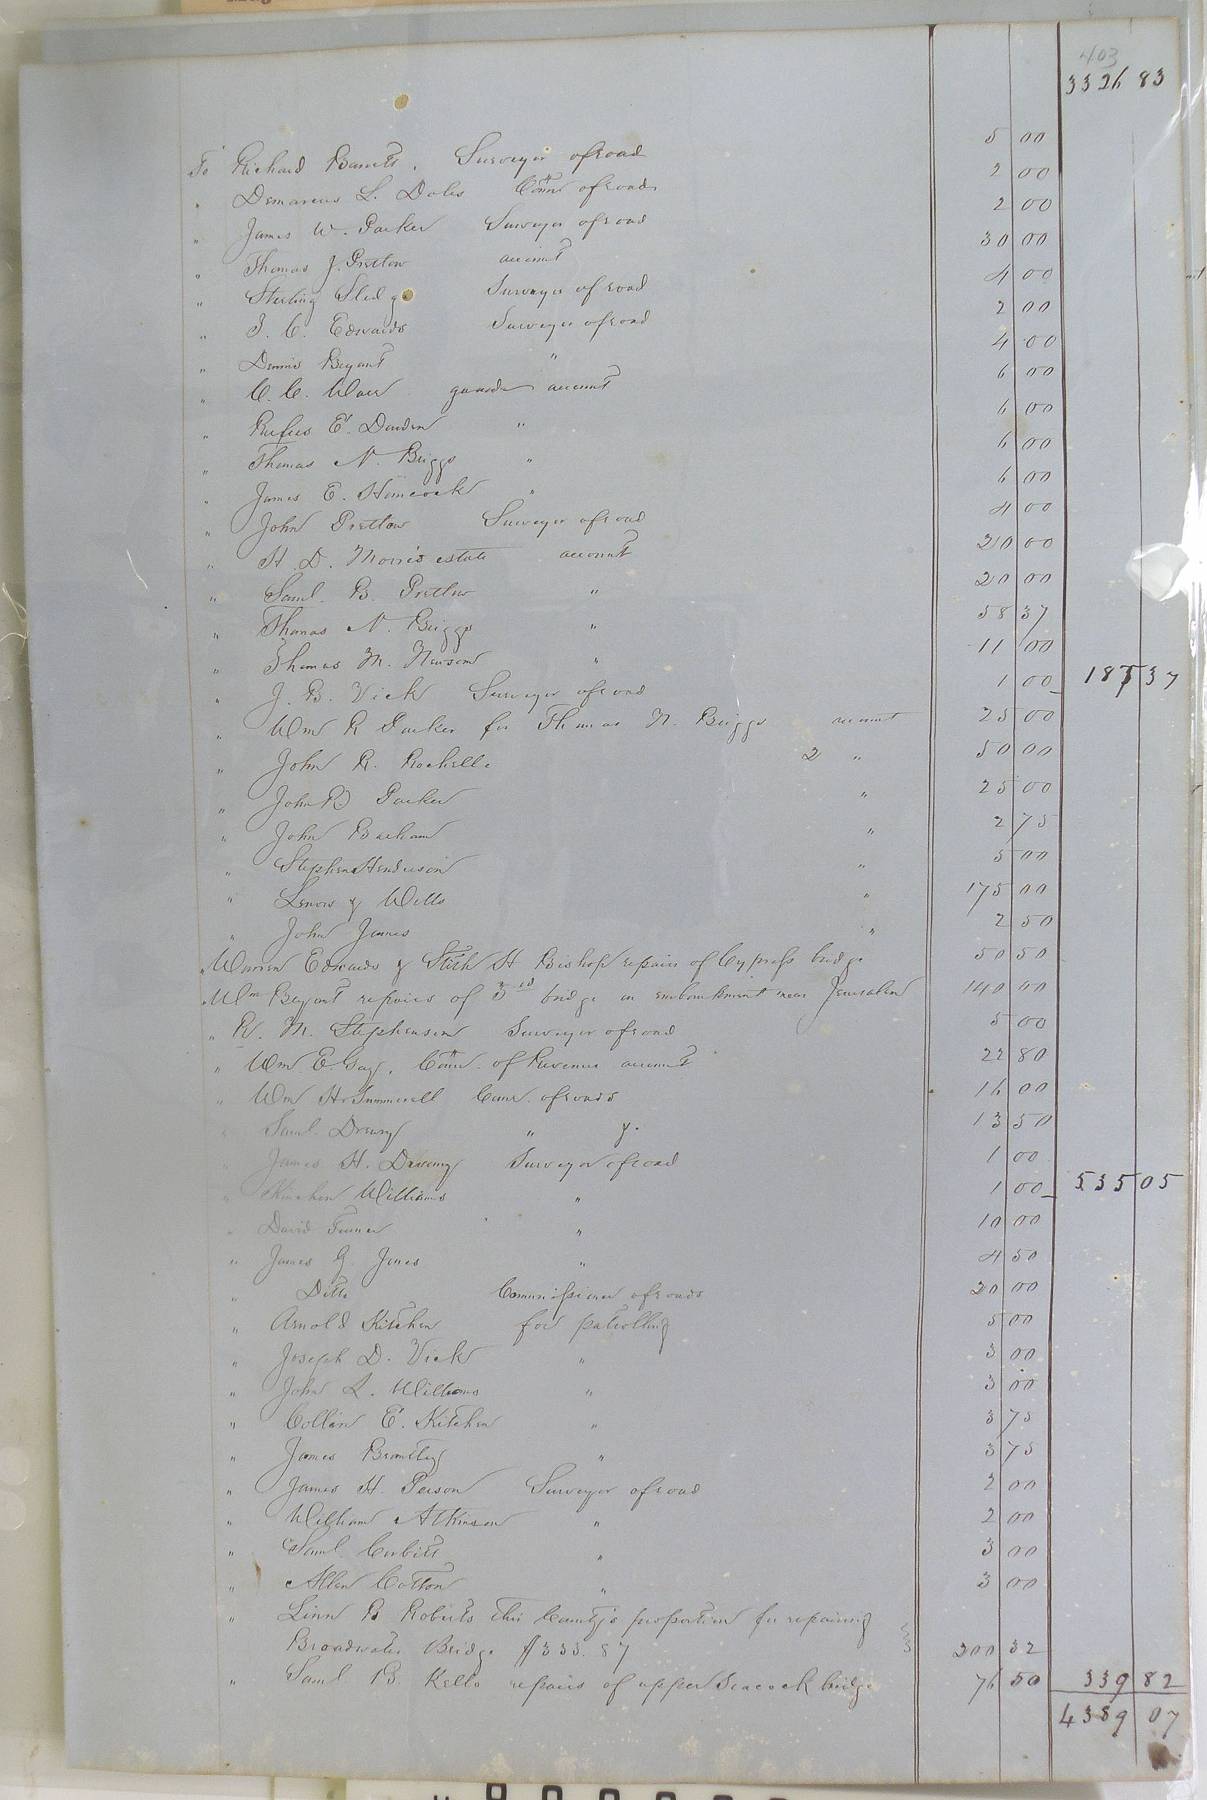 403
3326 83
To Richard Barrett, Surveyor of road 5 00
" Demarcus L. Doles Comr of roads 2 00
" James W. Parker Surveyor of road 2 00
" Thomas J. Pretlow account 30 00
" Sterling Sledge Surveyor of road 4 00
" J. C. Edwards Surveyor of road 2 00
" Dennis Bryant " 4 00
" C. C. guard account 6 00
" Rufus E. Darden " 6 00
" Thomas N. Briggs " 6 00
" James E. Hancock " 6 00
" John Pretlow Surveyor of road 4 00
" H. D. Morris estate account 20 00
" Saml. B. Pretlow " 20 00
" Thomas N. Briggs " 58 37
" Thomas M. Newsom " 11 00
" J. B. Vick Surveyor of road 1 00 187 37
" Wm R Parker for Thomas N. Briggs account 25 00
" John R. Rochelle 2 " 50 00
" John R Parker " 25 00
" John Barham " 2 75
" Stephen Henderson " 5 00
" & Wells " 175 00
" John James " 2 50
" Warren Edwards & Stith H Bishop repairs of Cypress bridge 50 50
" Wm Bryant repairs of 3rd bridge on embankment near Jerusalem 140 00
" R. M. Stephenson Surveyor of road 5 00
" Wm E. Gay, Comr. of Revenue account 22 80
" Wm H. Summerell Comr. of roads 16 00
" Saml. Drewry " 13 50
" James H. Drewry Surveyor of road 1 00
" Kinchen Williams " 1 00 535 05
" David Turner " 10 00
" James G. Jones " 4 50
" Ditto Commissioner of roads 20 00
" Arnold Kitchen for patrolling 5 00
" Joseph D. Vick " 3 00
" John L. Williams " 3 00
" Collin E. Kitchen " 3 75
" James Brantley " 3 75
" James H. Person Surveyor of road 2 00
" William Atkinson " 2 00
" Saml. Corbitt " 3 00
" Allen Cotton " 3 00
" Linn B Roberts this County's proportion for repairing
Broadwater Bridge $333.87 200 32
" Saml B. Kello repairs of upper Seacock bridge 76 50 339 82
4389 07